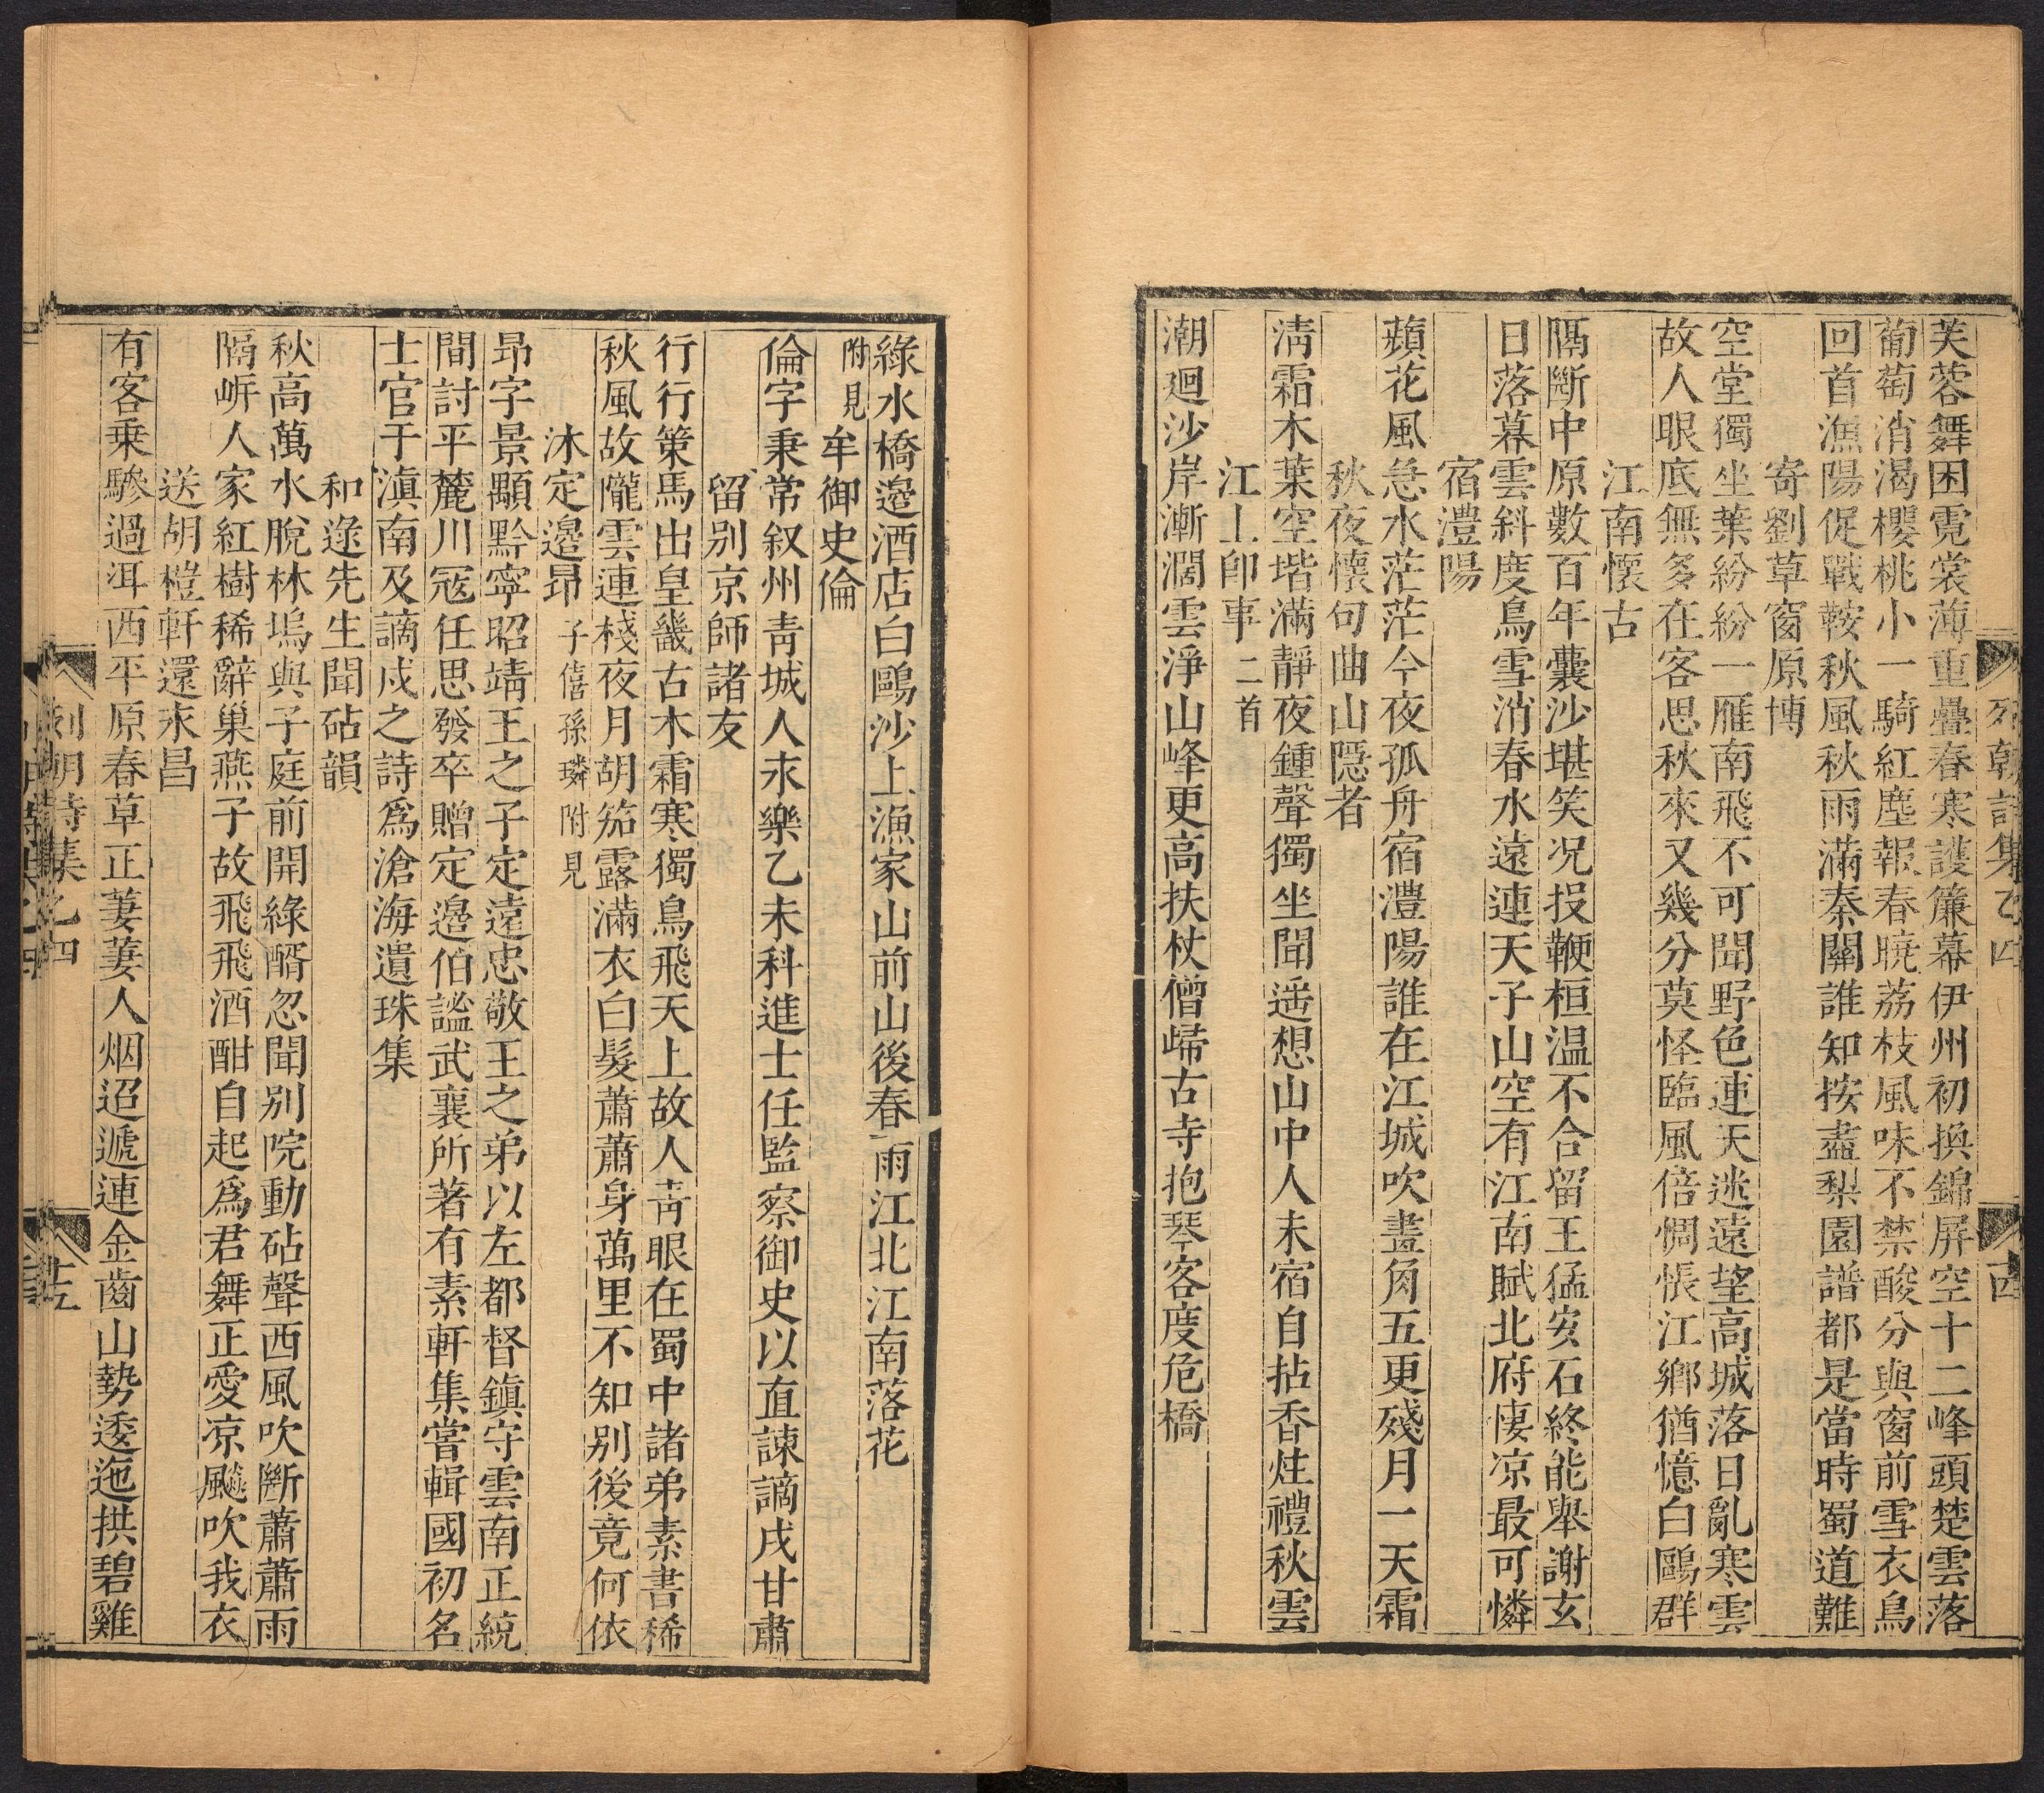 芙蓉舞困霓裳薄重疊春寒護簾幕伊州初換錦屏空十二峰頭楚雲落
葡萄消渴櫻桃小一騎紅塵報春曉荔枝風味不禁酸分與窗前雪衣鳥
回首漁陽促戰鞍秋風秋雨滿秦關誰知按盡梨園譜都是當時蜀道難
寄劉草窗原博
空堂獨坐葉紛紛一雁南飛不可聞野色連天迷遠望高城落日亂寒雲
故人眼底無多在客思秋來又幾分莫怪臨風倍惆悵江鄉猶憶白鷗群
江南懷古
隔斷中原數百年囊沙堪笑况投鞭桓温不合留王猛安石終能舉謝玄
日落幕雲斜度鳥雪消春水遠連天子山空有江南賦北府悽凉最可憐
宿澧陽
蘋花風急水茫茫今夜孤舟宿澧陽誰在江城吹畫角五更殘月一天霜
秋夜懷句曲山隱者
淸霜木葉空堦滿靜夜鍾聲獨坐聞遥想山中人未宿自拈香炷禮秋雲
江上即事二首
潮迴沙岸漸濶雲淨山峰更高扶杖僧歸古寺抱琴客度危橋
列朝詩集乙四
綠水橋邉酒店白鷗沙上漁家山前山後春雨江北江南落花
附見牟御史倫
倫字秉常叙州靑城人永樂乙未科進士任監察御史以直諫謫戍甘肅
留別京師諸友
行行策馬出皇畿古木霜寒獨鳥飛天上故人靑眼在蜀中諸弟素書稀
秋風故隴雲連棧夜月胡笳露滿衣白髮蕭蕭身萬里不知別後竟何依
沐定邉昂子僖孫璘附見
昂字景顒黔寧昭靖王之子定遠忠敬王之弟以左都督鎮守雲南正統
間討平麓川冦任思發卒贈定邉伯謚武襄所著有素軒集嘗輯國初名
士官于滇南及謫戍之詩爲滄海遺珠集
和逯先生聞砧韻
秋高萬水脫林塢與子庭前開綠醑忽聞別院動砧聲西風吹斷蕭蕭雨
隔㟁人家紅樹稀辭巢燕子故飛飛酒酣自起爲君舞正愛凉飈吹我衣
送胡櫿軒還永昌
有客乗驂過洱西平原春草正萋萋人烟迢遞連金齒山勢逶迤拱碧雞
列朝詩集乙四